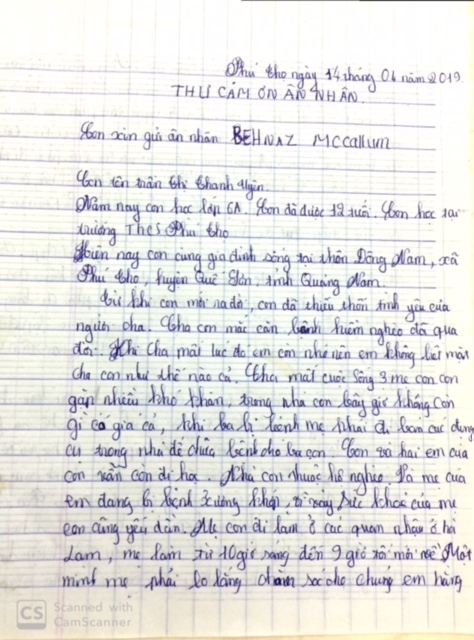 Phú thọ ngày 14 tháng 01 năm 2019.
THƯ CẢM ƠN ÂN NHÂN.
Con xin gửi ân nhân BEHNAZ MCCallum
Con tên trần thị thanh
Năm nay con học lớp 6A. Con đã được 12 tuổi. Con học tại
trường THCS Phú thọ
Hiện nay con cùng gia đình sống tại thôn Đông Nam, xã
Phú thọ, huyện Quế Sơn, tỉnh Quảng Nam.
Từ khi con mới ra đời, con đã thiếu thốn tình yêu của
người cha. Cha con mắc căn bệnh hiểm nghèo đã qua
đời. Khi cha mất lúc đó em còn nhỏ nên em không biết mặt
cha con như thế nào cả. Cha mất cuộc sống 3 mẹ con con
gặp nhiều khó khăn, trong nhà con bây giờ không còn
gì có giá cả, khi ba bị bệnh mẹ phải đi bán các dụng
cụ trong nhà để chữa bệnh cho ba con. Con và hai em của
con vẫn còn đi học. Nhà con thuộc hộ nghèo. Và mẹ của
em đang bị bệnh xương khớp, sức khỏe của mẹ
con cũng yếu dần. Mẹ con đi làm ở các quán nhậu ở hà
Lam, mẹ làm từ 10 giờ sáng đến 9 giờ tối mới về. Một
mình mẹ phải lo lắng chăm sóc cho chúng em hằng
CS Scanned with
CamScanner